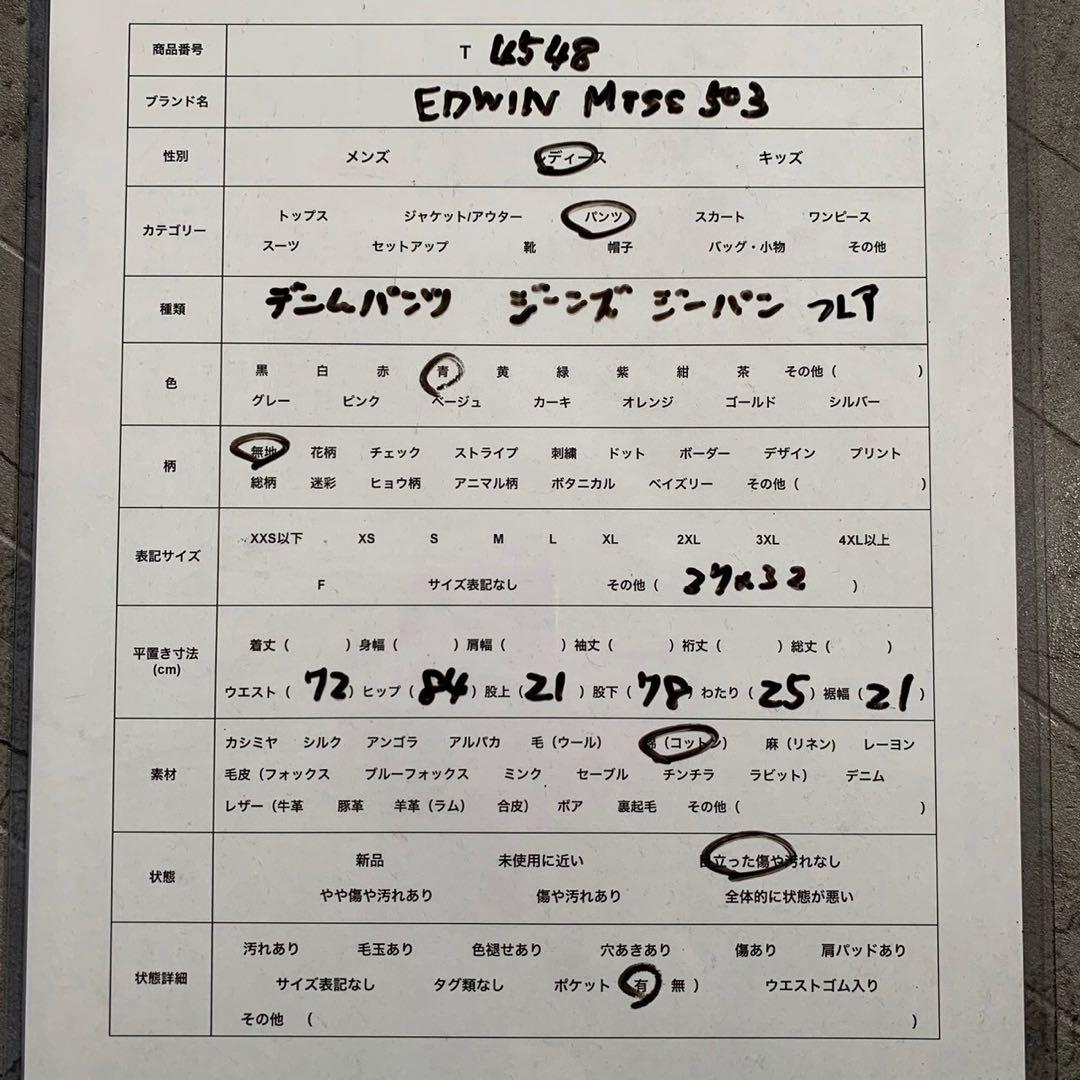 商品番号 T 4548
ブランド名 EDWIN MISS 503
性別 メンズ レディース キッズ
トップス ジャケット/アウター パンツ スカート ワンピース
カテゴリー
スーツ セットアップ 靴 帽子 バッグ・小物 その他
種類 デニムパンツ ジーンズ ジーパン フレア
黒 白 赤 青 黄 緑 紫 紺 茶 その他（ ）
色
グレー ピンク ベージュ カーキ オレンジ ゴールド シルバー
無地 花柄 チェック ストライプ 刺繍 ドット ボーダー デザイン プリント
柄
総柄 迷彩 ヒョウ柄 アニマル柄 ボタニカル ペイズリー その他（ ）
XXS以下 XS S M L XL 2XL 3XL 4XL以上
表記サイズ
F サイズ表記なし その他（ 27x32 ）
着丈（ ）身幅（ ）肩幅（ ）袖丈（ ）裄丈（ ）総丈（ ）
平置き寸法
(cm)
ウエスト（ 72 ）ヒップ（ 84 ）股上（ 21 ）股下（ 78 ）わたり（ 25 ）裾幅（ 21 ）
カシミヤ シルク アンゴラ アルパカ 毛（ウール） 綿（コットン） 麻（リネン） レーヨン
素材 毛皮（フォックス ブルーフォックス ミンク セーブル チンチラ ラビット） デニム
レザー（牛革 豚革 羊革（ラム） 合皮） ボア 裏起毛 その他（ ）
新品 未使用に近い 目立った傷や汚れなし
状態
やや傷や汚れあり 傷や汚れあり 全体的に状態が悪い
汚れあり 毛玉あり 色褪せあり 穴あきあり 傷あり 肩パッドあり
状態詳細 サイズ表記なし タグ類なし ポケット 有 無 ） ウエストゴム入り
その他 （ ）